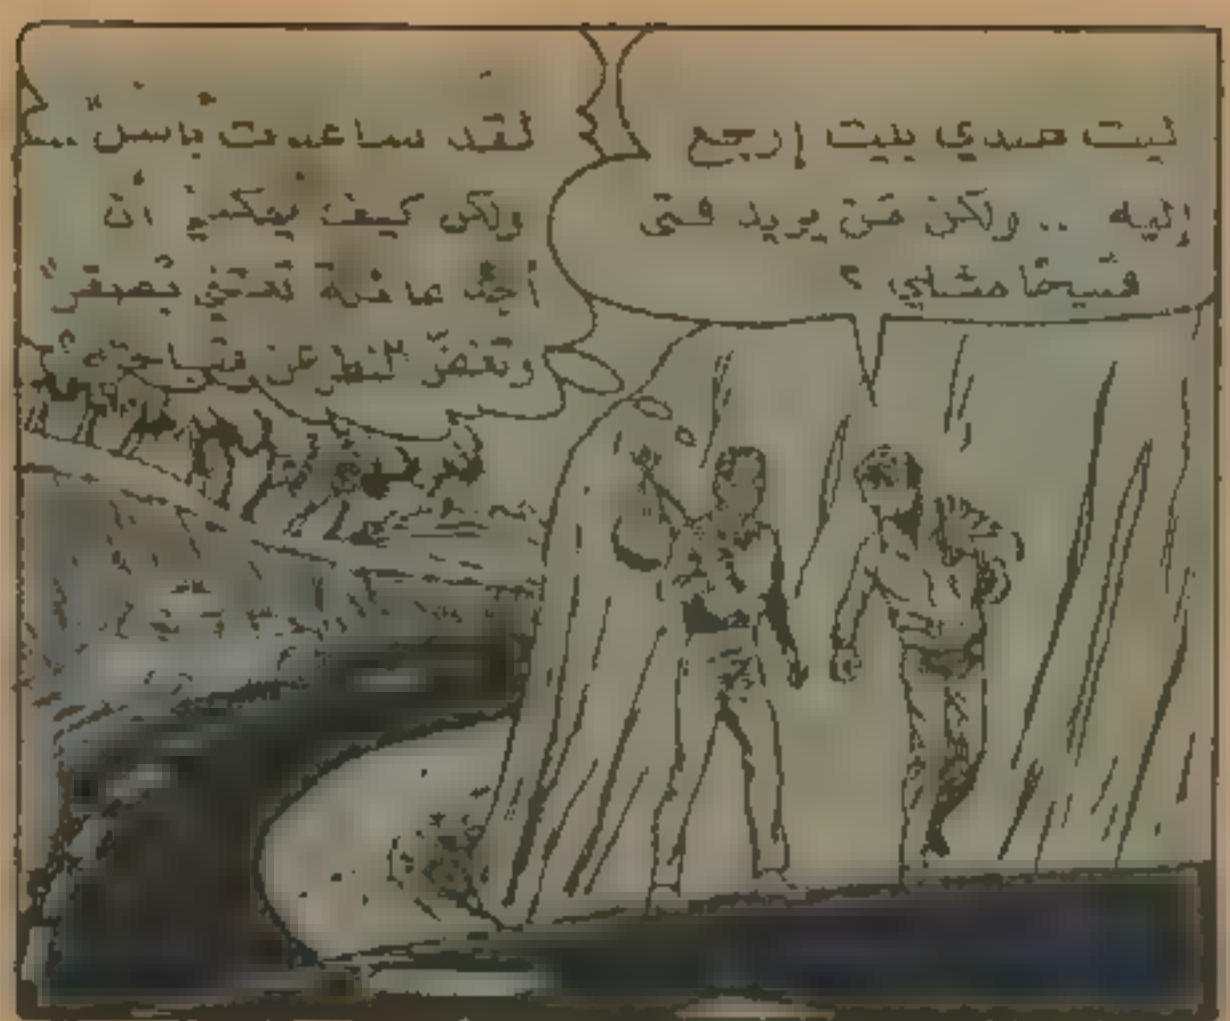 ليت عندي بيت إرجع
إليه .. ولكن مَن يريد فتى
قبيحًا مثلي ؟
لقد ساعدت
ولكن كيف يمكنني أن
أجد عائلة تعتني
وتغضّ النظر عن